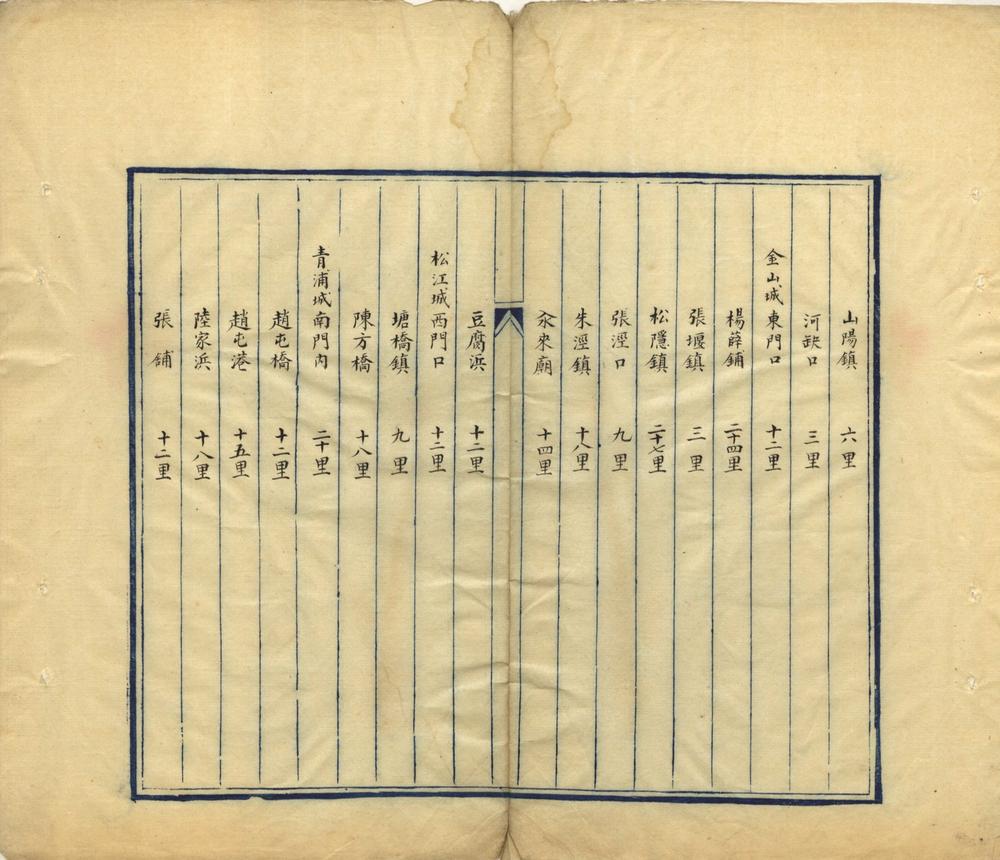 山陽鎮 六里
河缺口 三里
金山城東門口 十二里
楊薛鋪 二十四里
張堰鎮 三里
松隱鎮 二十七里
張涇口 九里
朱涇鎮 十八里
來廟 十四里
豆腐浜 十二里
松江城西門口 十二里
塘橋鎮 九里
陳方橋 十八里
青浦城南門內 二十里
趙屯橋 十二里
趙屯港 十五里
陸家浜 十八里
張鋪 十二里